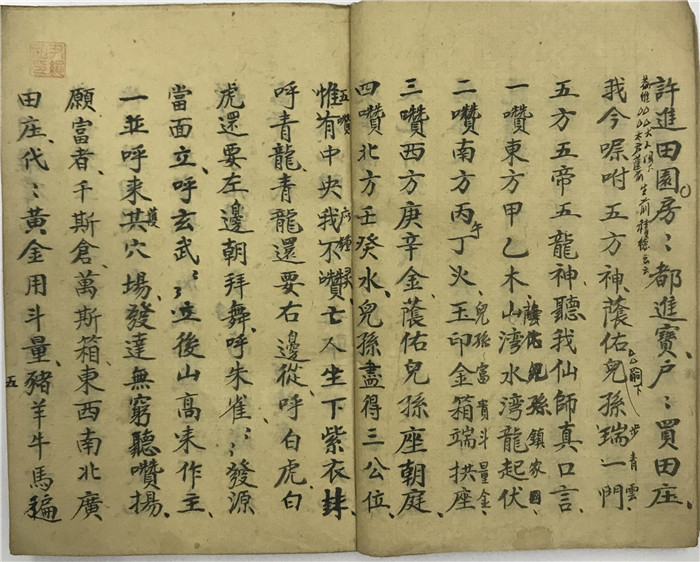 許進田園房〻都進寳户〻買田庄、
我今嘱咐五方神、蔭佑兒孫瑞一門
步青雲
五方五帝五龍神聽我仙師真口言、
一讚東方甲乙木山湾水湾龍起伏
蔭佑兒孫鎮家國、
二讚南方丙丁火、玉印金箱端拱座
午
兒孫富貴斗量金、
三讚西方庚辛金、蔭佑兒孫座朝庭、
四讚北方壬癸水、兒孫盡得三公位、
五讚
惟有中央我不讚亡人坐下紫衣
呼青龍青龍還要右邊從、呼白虎、白
虎還要左邊朝拜舞、呼朱雀、〻〻發源
當面立、呼玄武、〻〻立後山高來作主、
一並呼來其穴場、發達無窮聽讚揚、
護
願富者、千斯倉、萬斯箱、東西南北廣
田庄、代〻黃金用斗量、豬羊牛馬遍
五